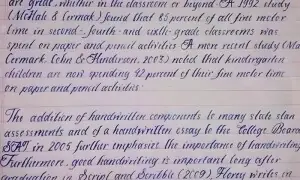 art grade, whither in the classroom or beyond. A 1992 study
(McHale & Cermak) found that 85 percent of all fine motor
time in second-, fourth- and sixth-grade classrooms was
spent on paper and pencil activities. A more recent study (Ma
Cermack Cohn & Hendirson, 2003) noted that kindergarten
children are now spending 42 percent of their fine motor time
on paper and pencil activities.
The addition of handwritten components to many state stan
assessments and of a handwritten essay to the College Board
SAT in 2005 further emphasizes the importance of handwriting
Furthermore, good handwriting is important long after
graduation in Script and Scribble (2009) Florey writes in